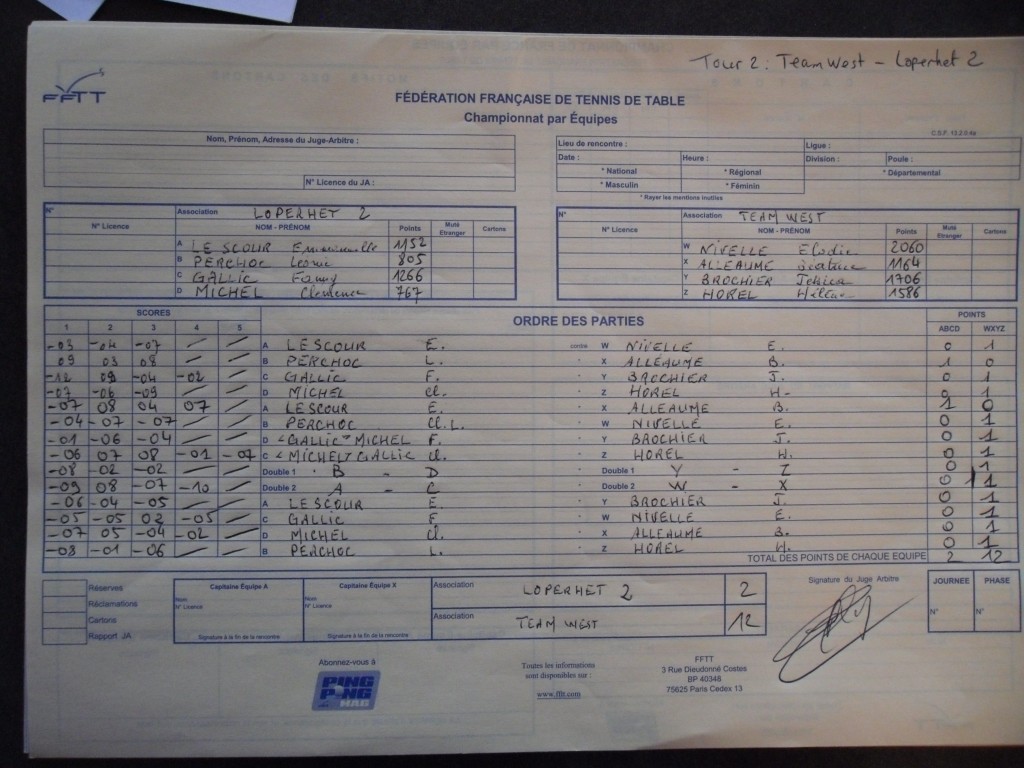 Tour 2 : Team West - Loperhet 2
FFTT
FÉDÉRATION FRANÇAISE DE TENNIS DE TABLE
Championnat par Équipes
C.S.F. 13.2.0.4a
Nom, Prénom, Adresse du Juge-Arbitre :
N° Licence du JA :
Lieu de rencontre : Ligue :
Date : Heure : Division : Poule :
* National * Régional * Départemental
* Masculin * Féminin
* Rayer les mentions inutiles
N° Association LOPERHET 2
N° Licence NOM - PRÉNOM Points Muté Etranger Cartons
A LE SCOUR Emmanuelle 1152
B PERCHOC Leonie 805
C GALLIC Fanny 1266
D MICHEL Clemence 767
N° Association TEAM WEST
N° Licence NOM - PRÉNOM Points Muté Etranger Cartons
W NIVELLE Elodie 2060
X ALLEAUME Béatrice 1164
Y BROCHIER 1706
Z HOREL Hélène 1586
SCORES ORDRE DES PARTIES POINTS
1 2 3 4 5 ABCD WXYZ
-03 -04 -07 / / A LESCOUR E. contre W NIVELLE E. 0 1
09 03 08 / / B PERCHOC L. " X ALLEAUME B. 1 0
-12 09 -04 -02 / C GALLIC F. " Y BROCHIER J. 0 1
-07 -06 -09 / / D MICHEL Cl. " Z HOREL H. 0 1
-07 08 04 07 / A LESCOUR E. " X ALLEAUME B. 1 0
-04 -07 -07 / / B PERCHOC Cl. L. " W NIVELLE E. 0 1
-01 -06 -04 / / D <GALLIC> MICHEL F. " Y BROCHIER J. 0 1
-06 07 08 -01 -07 C <MICHEL> GALLIC Cl. " Z HOREL H. 0 1
-08 -02 -02 / / Double 1 B - D Double 1 Y - Z 0 1
-09 08 -07 -10 / Double 2 A - C " Double 2 W - X 0 1
-06 -04 -05 / / A LESCOUR E. " Y BROCHIER J. 0 1
-05 -05 02 -05 / C GALLIC F " W NIVELLE E. 0 1
-07 05 -04 -02 / D MICHEL Cl. " X ALLEAUME B. 0 1
-08 -01 -06 / / B PERCHOC L. " Z HOREL H. 0 1
TOTAL DES POINTS DE CHAQUE EQUIPE 2 12
Réserves
Réclamations
Cartons
Rapport JA
Capitaine Équipe A
Nom
N° Licence
Signature à la fin de la rencontre
Capitaine Équipe X
Nom
N° Licence
Signature à la fin de la rencontre
Association LOPERHET 2 2
Association TEAM WEST 12
Signature du Juge Arbitre
JOURNEE PHASE
N° N°
Abonnez-vous à
PING PONG MAG
Toutes les informations
sont disponibles sur :
www.fftt.com
FFTT
3 Rue Dieudonné Costes
BP 40348
75625 Paris Cedex 13